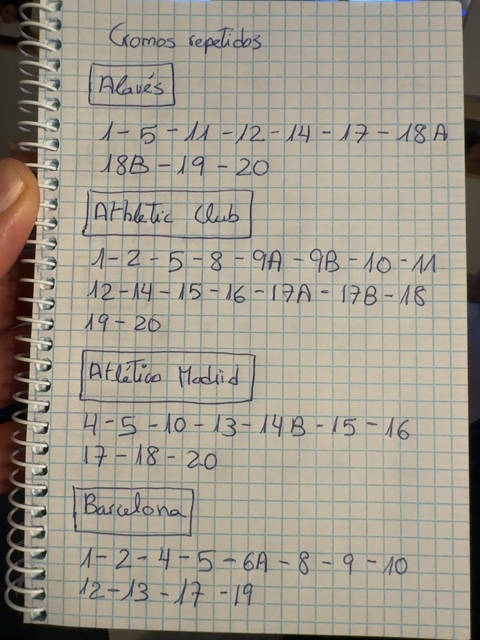 Cromos repetidos
Alavés
1 - 5 - 11 - 12 - 14 - 17 - 18A
18B - 19 - 20
Athletic Club
1 - 2 - 5 - 8 - 9A - 9B - 10 - 11
12 - 14 - 15 - 16 - 17A - 17B - 18
19 - 20
Atlético Madrid
4 - 5 - 10 - 13 - 14B - 15 - 16
17 - 18 - 20
Barcelona
1 - 2 - 4 - 5 - 6A - 8 - 9 - 10
12 - 13 - 17 - 19